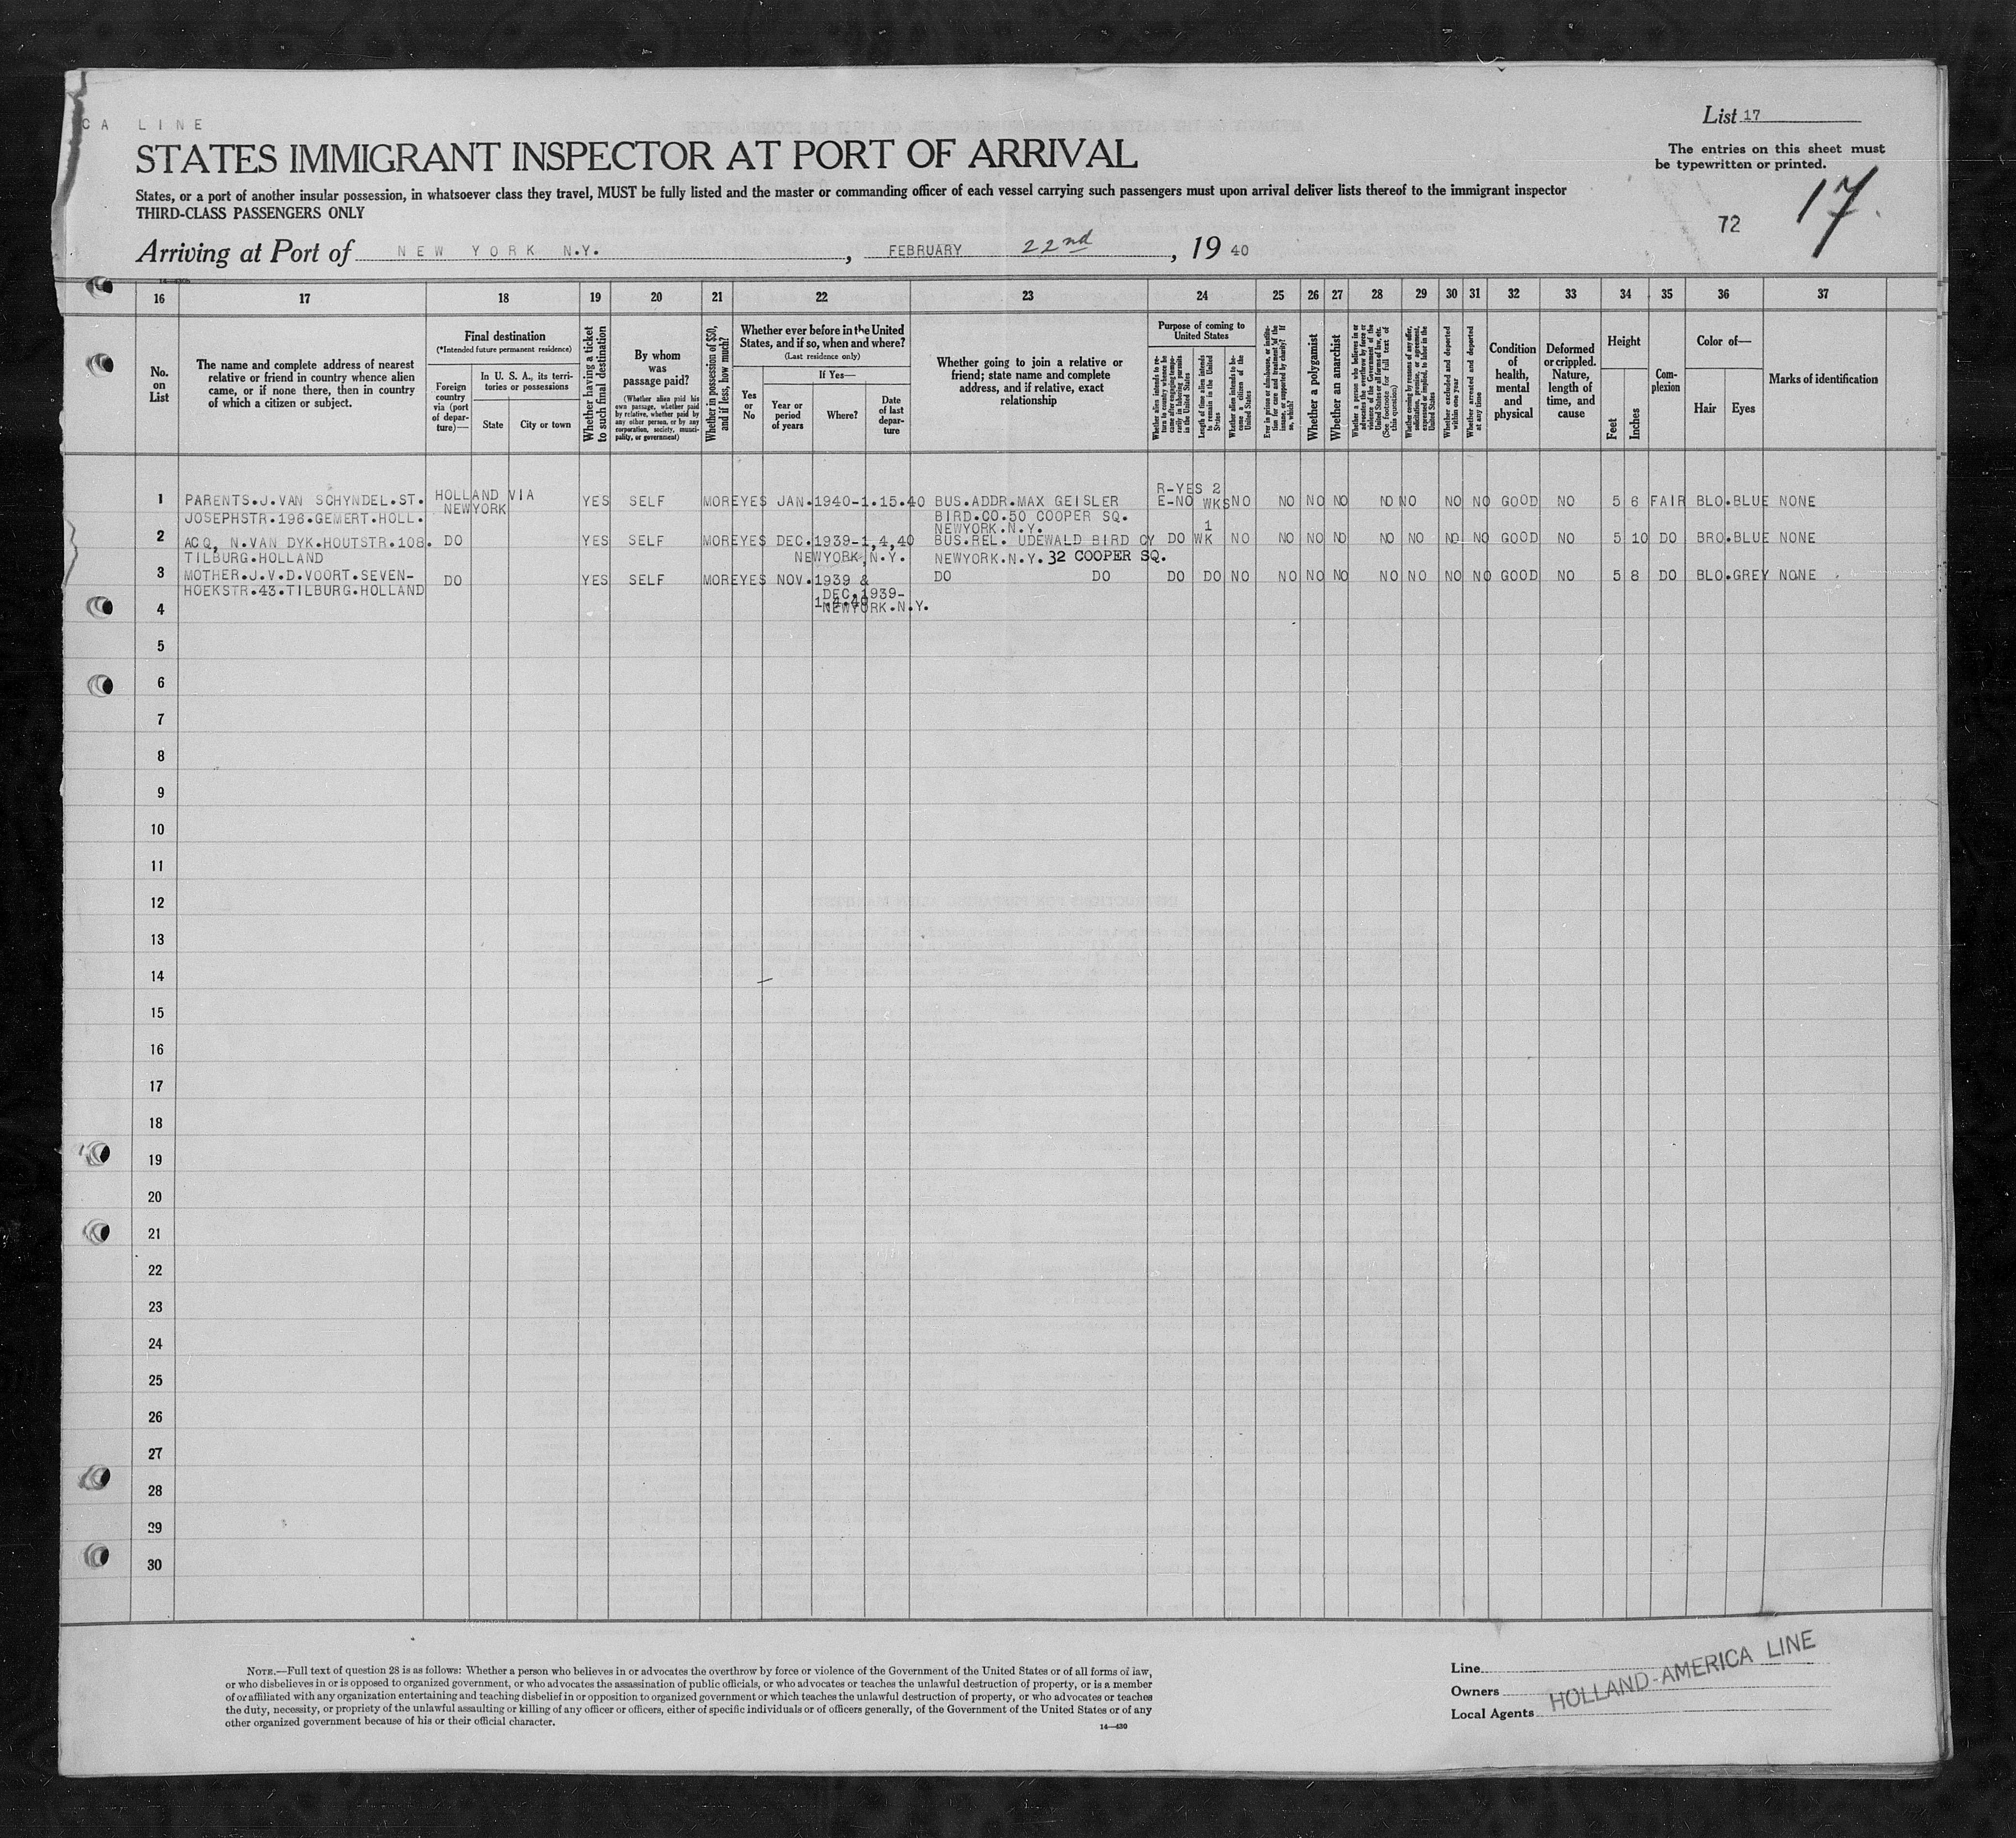 CA LINE
List 17
STATES IMMIGRANT INSPECTOR AT PORT OF ARRIVAL
The entries on this sheet must
be typewritten or printed.
States, or a port of another insular possession, in whatsoever class they travel, MUST be fully listed and the master or commanding officer of each vessel carrying such passengers must upon arrival deliver lists thereof to the immigrant inspector
THIRD-CLASS PASSENGERS ONLY
72
17.
Arriving at Port of NEW YORK N.Y. , FEBRUARY 22nd , 19 40
16 17 18 19 20 21 22 23 24 25 26 27 28 29 30 31 32 33 34 35 36 37
No.
on
List
The name and complete address of nearest
relative or friend in country whence alien
came, or if none there, then in country
of which a citizen or subject.
Final destination
(*Intended future permanent residence)
Foreign
country
via (port
of depar-
ture)—
In U. S. A., its terri-
tories or possessions
State
City or town
Whether having a ticket
to such final destination
By whom
was
passage paid?
(Whether alien paid his
own passage, whether paid
by relative, whether paid by
any other person, or by any
corporation, society, munici-
pality, or government)
Whether in possession of $50,
and if less, how much?
Whether ever before in the United
States, and if so, when and where?
(Last residence only)
Yes
or
No
If Yes—
Year or
period
of years
Where?
Date
of last
depar-
ture
Whether going to join a relative or
friend; state name and complete
address, and if relative, exact
relationship
Purpose of coming to
United States
Whether alien intends to re-
turn to country whence he
came after engaging tempo-
rarily in laboring pursuits
in the United States
Length of time alien intends
to remain in the United
States
Whether alien intends to be-
come a citizen of the
United States
Ever in prison or almshouse, or institu-
tion for care and treatment of the
insane, or supported by charity? If
so, which?
Whether a polygamist
Whether an anarchist
Whether a person who believes in or
advocates the overthrow by force or
violence of the Government of the
United States or all forms of law, etc.
(See footnote for full text of
this question)
Whether coming by reasons of any offer,
solicitation, promise, or agreement,
expressed or implied, to labor in the
United States
Whether excluded and deported
within one year
Whether arrested and deported
at any time
Condition
of
health,
mental
and
physical
Deformed
or crippled.
Nature,
length of
time, and
cause
Height
Feet
Inches
Com-
plexion
Color of—
Hair
Eyes
Marks of identification
1 PARENTS.J.VAN SCHYNDEL.ST. HOLLAND VIA YES SELF MORE YES JAN.1940-1.15.40 BUS.ADDR.MAX GEISLER R-YES 2
JOSEPHSTR.196.GEMERT.HOLL. NEWYORK BIRD.CO.50 COOPER SQ. E-NO WKS NO NO NO NO NO NO NO NO GOOD NO 5 6 FAIR BLO.BLUE NONE
NEWYORK.N.Y.
2 ACQ, N.VAN DYK.HOUTSTR.108. DO YES SELF MORE YES DEC.1939-1,4,40 BUS.REL. UDEWALD BIRD CY DO 1 WK NO NO NO NO NO NO NO NO GOOD NO 5 10 DO BRO.BLUE NONE
TILBURG.HOLLAND NEWYORK,N.Y. NEWYORK.N.Y. 32 COOPER SQ.
3 MOTHER.J.V.D.VOORT.SEVEN- DO YES SELF MORE YES NOV.1939 & DO DO DO DO NO NO NO NO NO NO NO NO GOOD NO 5 8 DO BLO.GREY NONE
HOEKSTR.43.TILBURG.HOLLAND DEC.1939-
1.4.40
NEWYORK.N.Y.
4
5
6
7
8
9
10
11
12
13
14
15
16
17
18
19
20
21
22
23
24
25
26
27
28
29
30
NOTE.—Full text of question 28 is as follows: Whether a person who believes in or advocates the overthrow by force or violence of the Government of the United States or of all forms of law,
or who disbelieves in or is opposed to organized government, or who advocates the assassination of public officials, or who advocates or teaches the unlawful destruction of property, or is a member
of or affiliated with any organization entertaining and teaching disbelief in or opposition to organized government or which teaches the unlawful destruction of property, or who advocates or teaches
the duty, necessity, or propriety of the unlawful assaulting or killing of any officer or officers, either of specific individuals or of officers generally, of the Government of the United States or of any
other organized government because of his or their official character.
14—430
Line
Owners
Local Agents
HOLLAND-AMERICA LINE